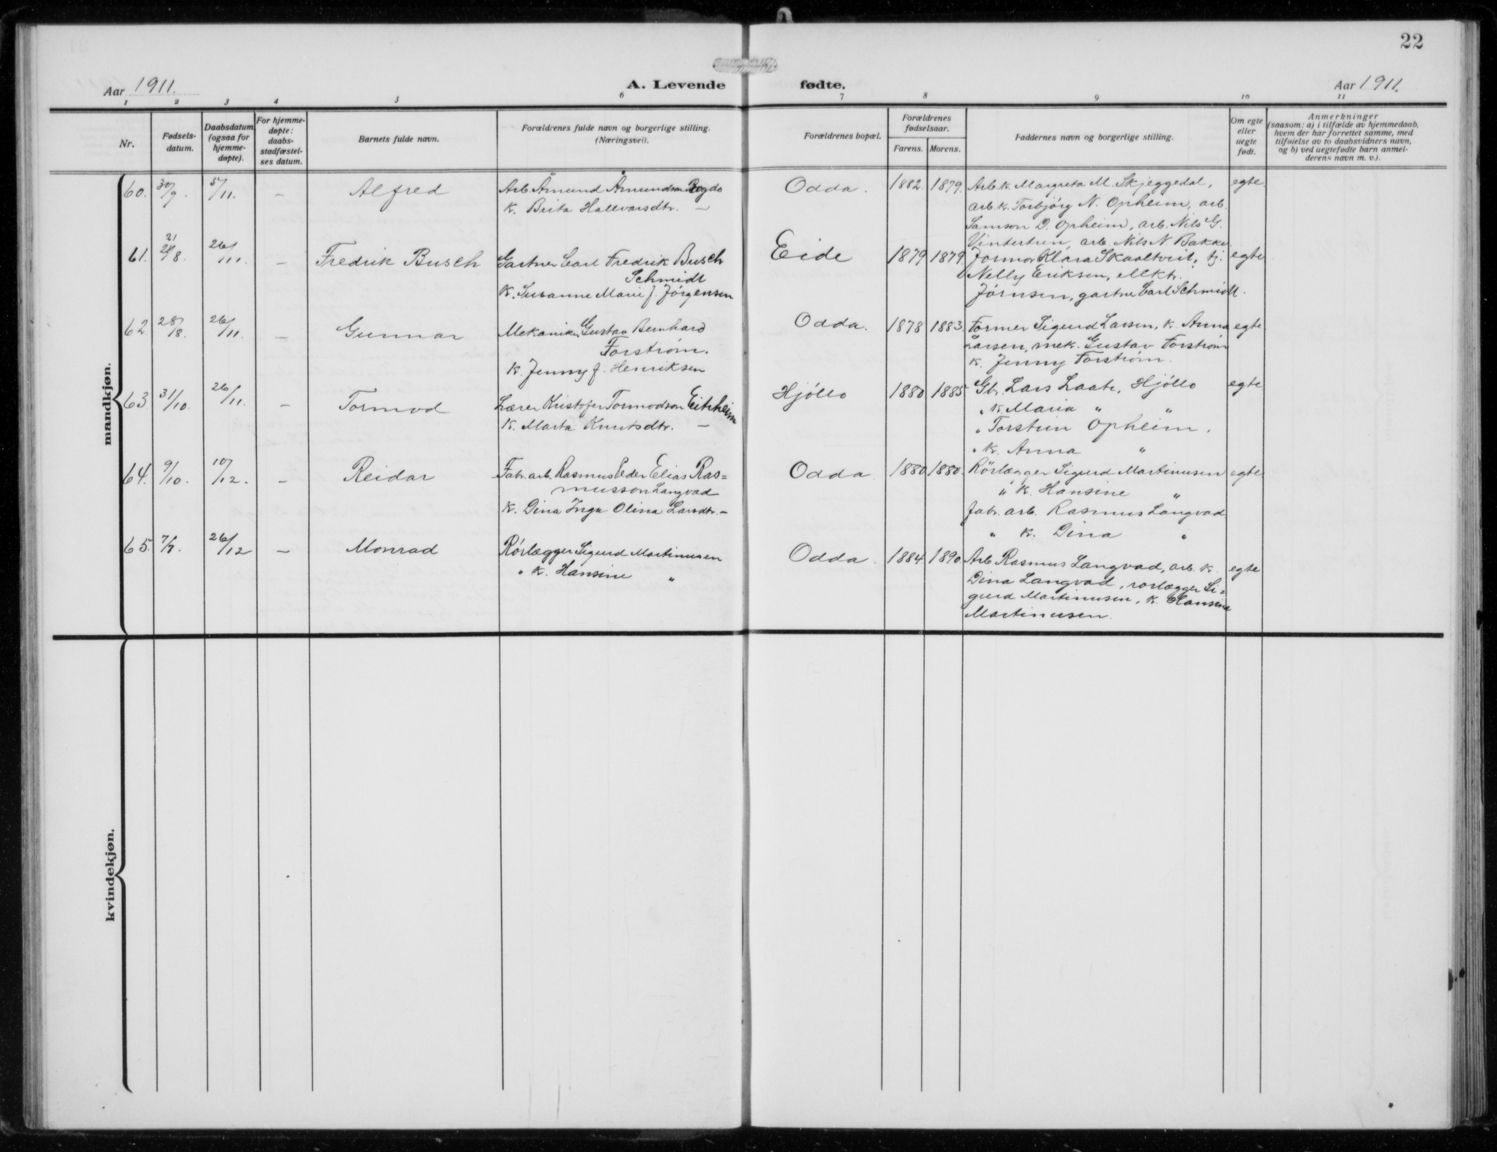 22
Aar 1911.
A. Levende fødte.
Aar 1911.
1 2 3 4 5 6 7 8 9 10 11
Nr.
Fødsels-
datum.
Daabsdatum
(ogsaa for
hjemme-
døpte).
For hjemme-
døpte:
daabs-
stadfæstel-
ses datum.
Barnets fulde navn.
Forældrenes fulde navn og borgerlige stilling.
(Næringsvei).
Forældrenes bopæl.
Forældrenes
fødselsaar.
Farens. Morens.
Faddernes navn og borgerlige stilling.
Om egte
eller
uegte
født.
Anmerkninger
(saasom: a) i tilfælde av hjemmedaab,
hvem der har forrettet samme, med
tilføielse av to daabsvidners navn,
og b) ved uegtefødte barn anmel-
derens navn m. v.).
mandkjøn.
60. 30/9. 5/11. – Alfred
Arb. Åmund Åmundson
K. Brita Hallvarsdtr. –
Odda. 1882 1879
Arb. k. Margreta M. Skjeggedal,
arb. k. Torbjörg N. Opheim, arb.
Samson D. Opheim, arb. Nils G.
arb. Nils N. Bakke.
egte
61. 21/8. 26/11. – Fredrik Busch
Gartner Carl Fredrik Busch
Schmidt
K. Susanne Marie f. Jörgensen
Eide 1879 1879
Formor Klara Skaaltveit, tj.
Nelly Eriksen, elktr.
Jörnsen, gartner Carl Schmidt.
egte
62 28/8. 26/11. – Gunnar
Mekaniker Gustav Bernhard
Forström.
K. Jenny f. Henriksen
Odda. 1878 1883.
Former Sigurd Larsen, k. Anna
Larsen, mek. Gustav Forström
k. Jenny Forström.
egte
63 31/10. 26/11. – Tormod
Lærer Kristofer Tormodson Eitrheim
K. Marta Knutsdtr. –
Hjöllo 1880 1885
Gb. Lars Laate, Hjöllo
" k. Maria " "
" Torstein Opheim.
" k. Anna "
egte
64. 9/10. 10/12. – Reidar
Fabr. arb. Rasmus Peder Elias Ras=
musson Langvad
K. Dina Inga Olina Larsdtr. –
Odda 1880 1880.
Rörlægger Sigurd Martinusen
" k. Hansine "
fabr. arb. Rasmus Langvad
" k. Dina "
egte
65. 26/12 – Monrad
Rörlægger Sigurd Martinusen
" k. Hansine "
Odda. 1884 1890
Arb. Rasmus Langvad, arb. k.
Dina Langvad, rörlægger Si=
gurd Martinusen, k. Hansine
Martinusen.
egte
kvindekjøn.